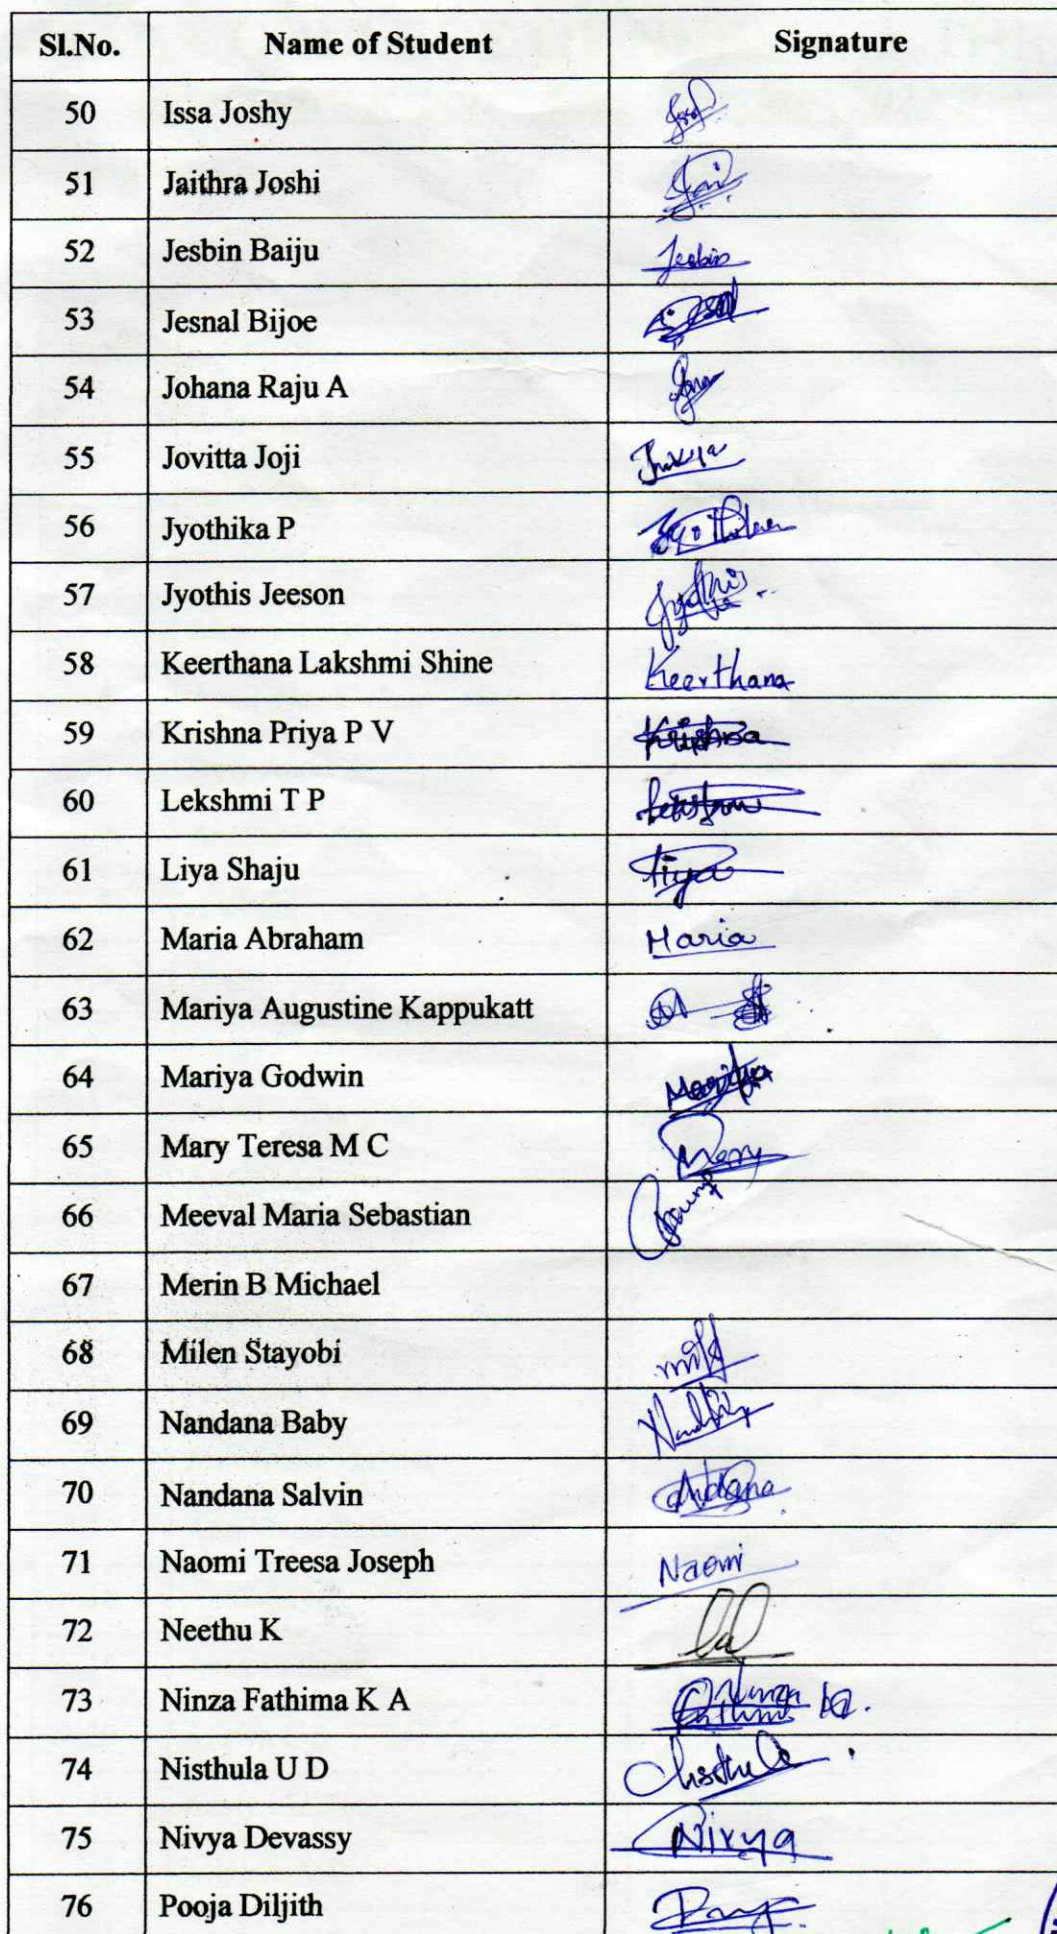 Sl.No. Name of Student Signature
50 Issa Joshy
51 Jaithra Joshi Jai
52 Jesbin Baiju Jesbin
53 Jesnal Bijoe
54 Johana Raju A
55 Jovitta Joji
56 Jyothika P Jyothika
57 Jyothis Jeeson Jyothis
58 Keerthana Lakshmi Shine Keerthana
59 Krishna Priya P V Krishna
60 Lekshmi T P
61 Liya Shaju Liya
62 Maria Abraham Maria
63 Mariya Augustine Kappukatt
64 Mariya Godwin Mariya
65 Mary Teresa M C Mary
66 Meeval Maria Sebastian
67 Merin B Michael
68 Milen Stayobi
69 Nandana Baby
70 Nandana Salvin
71 Naomi Treesa Joseph Naomi
72 Neethu K
73 Ninza Fathima K A
74 Nisthula U D
75 Nivya Devassy Nivya
76 Pooja Diljith